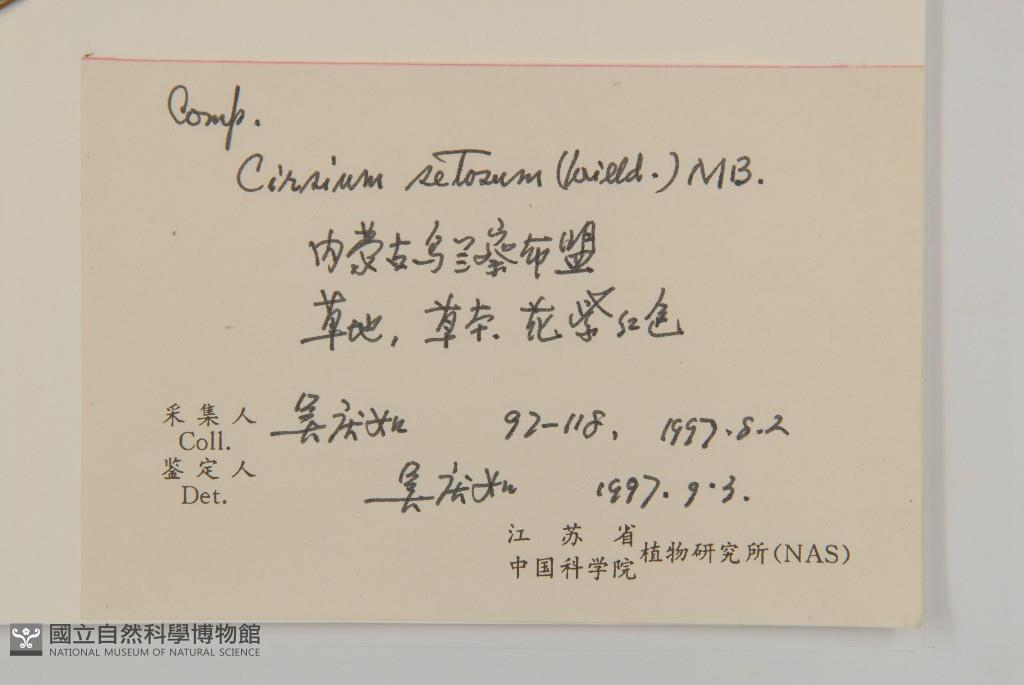 Comp.
Cirsium setosum (Willd.) MB.
内蒙古乌兰察布盟
草地, 草本. 花紫红色
采集人 吴庆如 97-118. 1997.8.2
Coll.
鉴定人 吴庆如 1997.9.3.
Det.
江苏省
中国科学院 植物研究所(NAS)
國立自然科學博物館
NATIONAL MUSEUM OF NATURAL SCIENCE